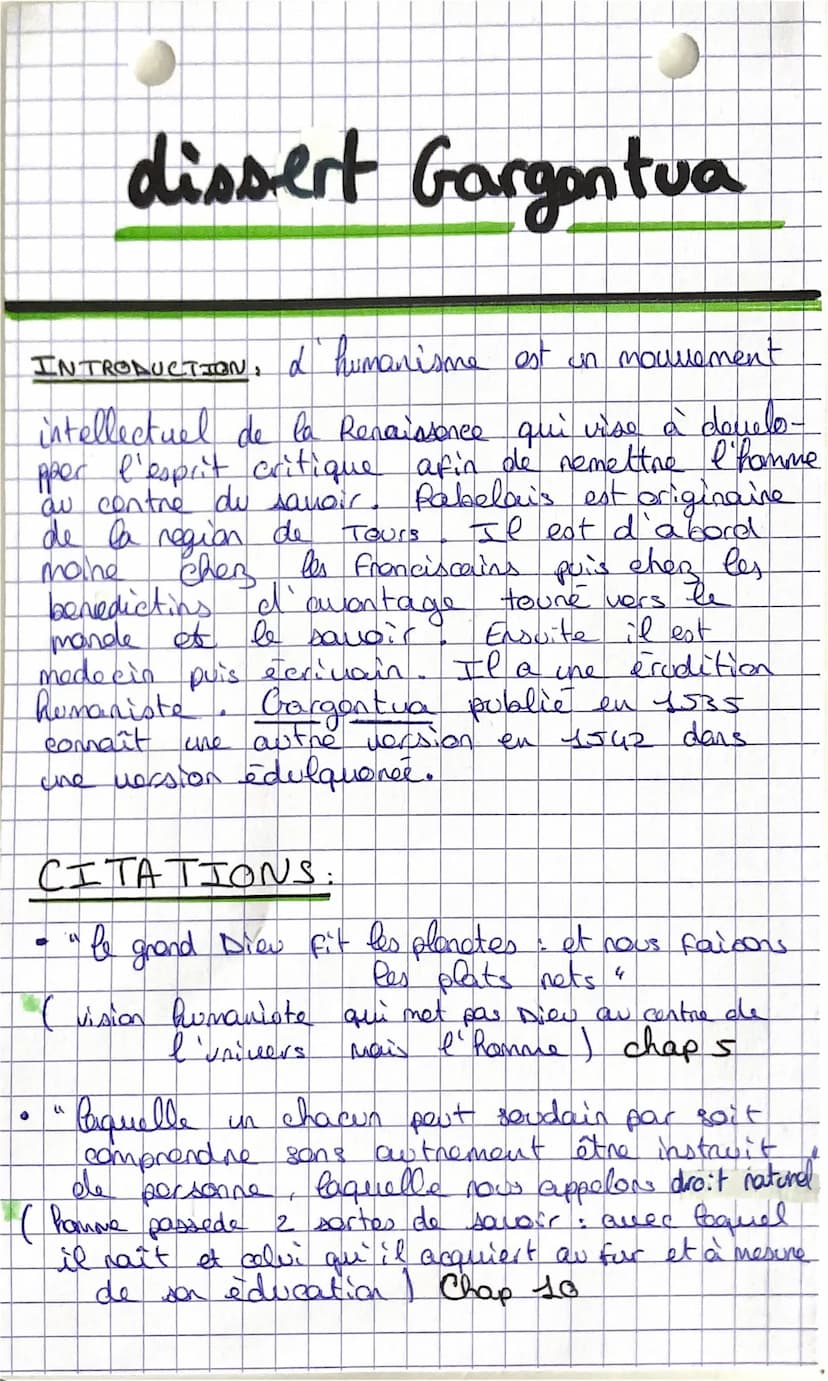 dissert Gargantua
INTRODUCTION, L'humanisme est un mouvement
intellectuel de la Renaissance qui vise à develo-
pper l'esprit critique afin de remettre l'homme
au centre du savoir. Rabelais est originaire
de la region de Tours. Il est d'abord
moine chez les Franciscains puis chez les
benedictins d'avantage tourné vers le
monde et le savoir. Ensuite il est
medecin puis écrivain. Il a une érudition
humaniste. Gargantua publié en 1535
connaît une autre version en 1542 dans
une version édulquoreé.
CITATIONS:
• "le grand Dieu fit les planetes : et nous faisons
les plats nets"
( vision humaniste qui met pas Dieu au centre de
l'univers mais l'homme ) chap 5
• "laquelle un chacun peut soudain par soit
comprendre sans autrement être instruit
de personne, laquelle nous appelons droit naturel
( homme possede 2 sortes de savoir : avec laquel
il naît et celui qu'il acquiert au fur et à mesure
de son éducation ) Chap 10